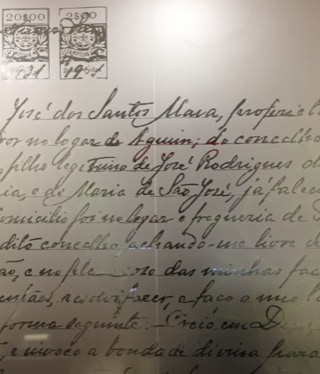 20$00 2$00
1931 1931
José dos Santos Mara, proprieta
dor no logar de Aguim, do concelho
filho legitimo de José Rodrigues d
ia, e de Maria de São José, já falec
domicilio foi no logar e freguesia de
dito concelho, achando-me livre d
ão, e no das minhas fac
resolvi fazer, e faço o meu
forma seguinte. Creio em Deus,
e invoco a bondade divina para